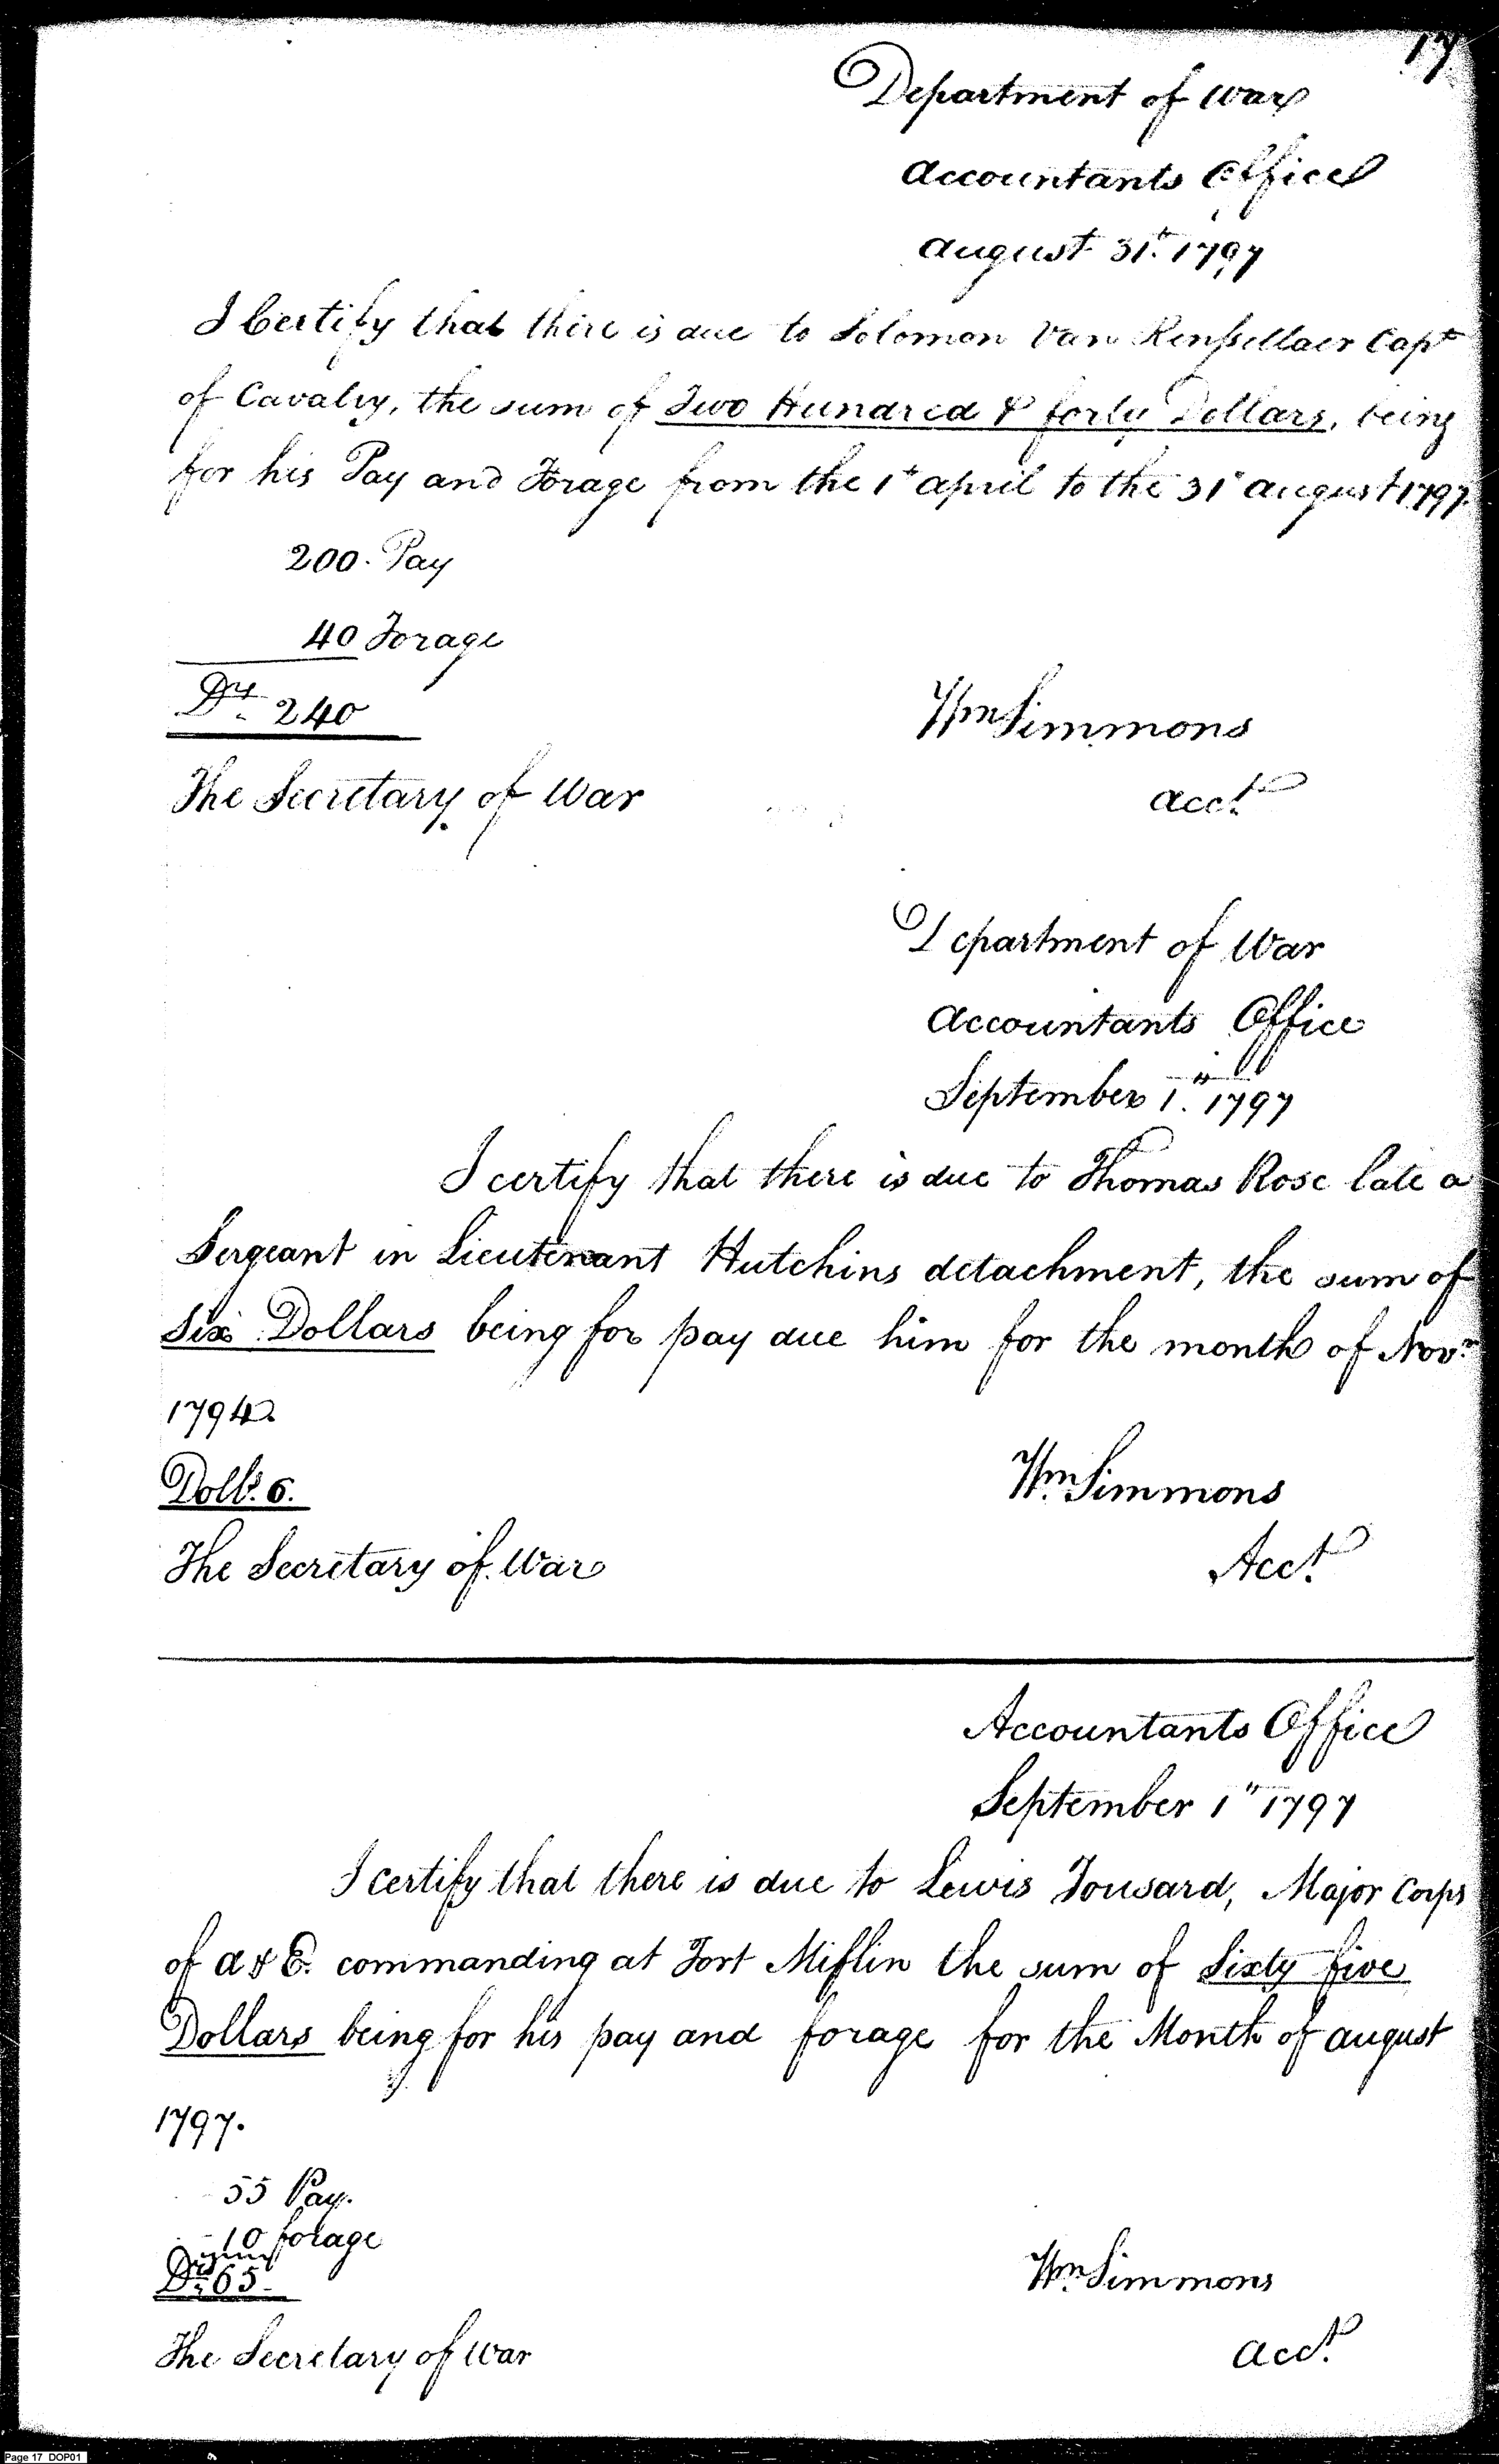 17
Department of War
Accountants Office
August 31st. 1797
I Certify that there is due to Solomon Van Renssellaer Capt
of Cavalry, the sum of Two Hundred & forty Dollars, being
for his Pay and Forage from the 1st april to the 31st august 1797.
200. Pay
40 Forage
Drs. 240
Wm Simmons
The Secretary of War
acct.
Department of War
Accountants Office
September 1st. 1797
I certify that there is due to Thomas Rose late a
Sergeant in Lieutenant Hutchins detachment, the sum of
Six Dollars being for pay due him for the month of Novr.
1794.
Dolls. 6.
Wm. Simmons
The Secretary of War
Acct.
Accountants Office
September 1st 1797
I certify that there is due to Lewis Tousard, Major Corps
of A & E. commanding at Fort Miflin the sum of Sixty five
Dollars being for his pay and forage for the Month of august
1797.
55 Pay.
10 forage
Drs. 65
Wm. Simmons
The Secretary of War
acct.
Page 17 DOP01